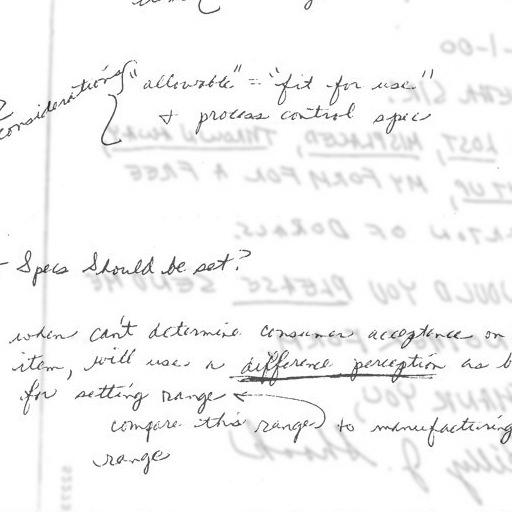 Considerations { "allowable" = "fit for use"
& process control specs
- Specs Should be set?
when can't determine consumer acceptance on
item, will use a difference perception as b
for setting range ←
compare this range) to manufacturing
range
-1-00
LOST, MISPLACED, THROWN AWAY
UP, MY FORM FOR A FREE
CARTON OF DORALS.
WOULD YOU PLEASE SEND ME
THANK YOU,
Billy J.